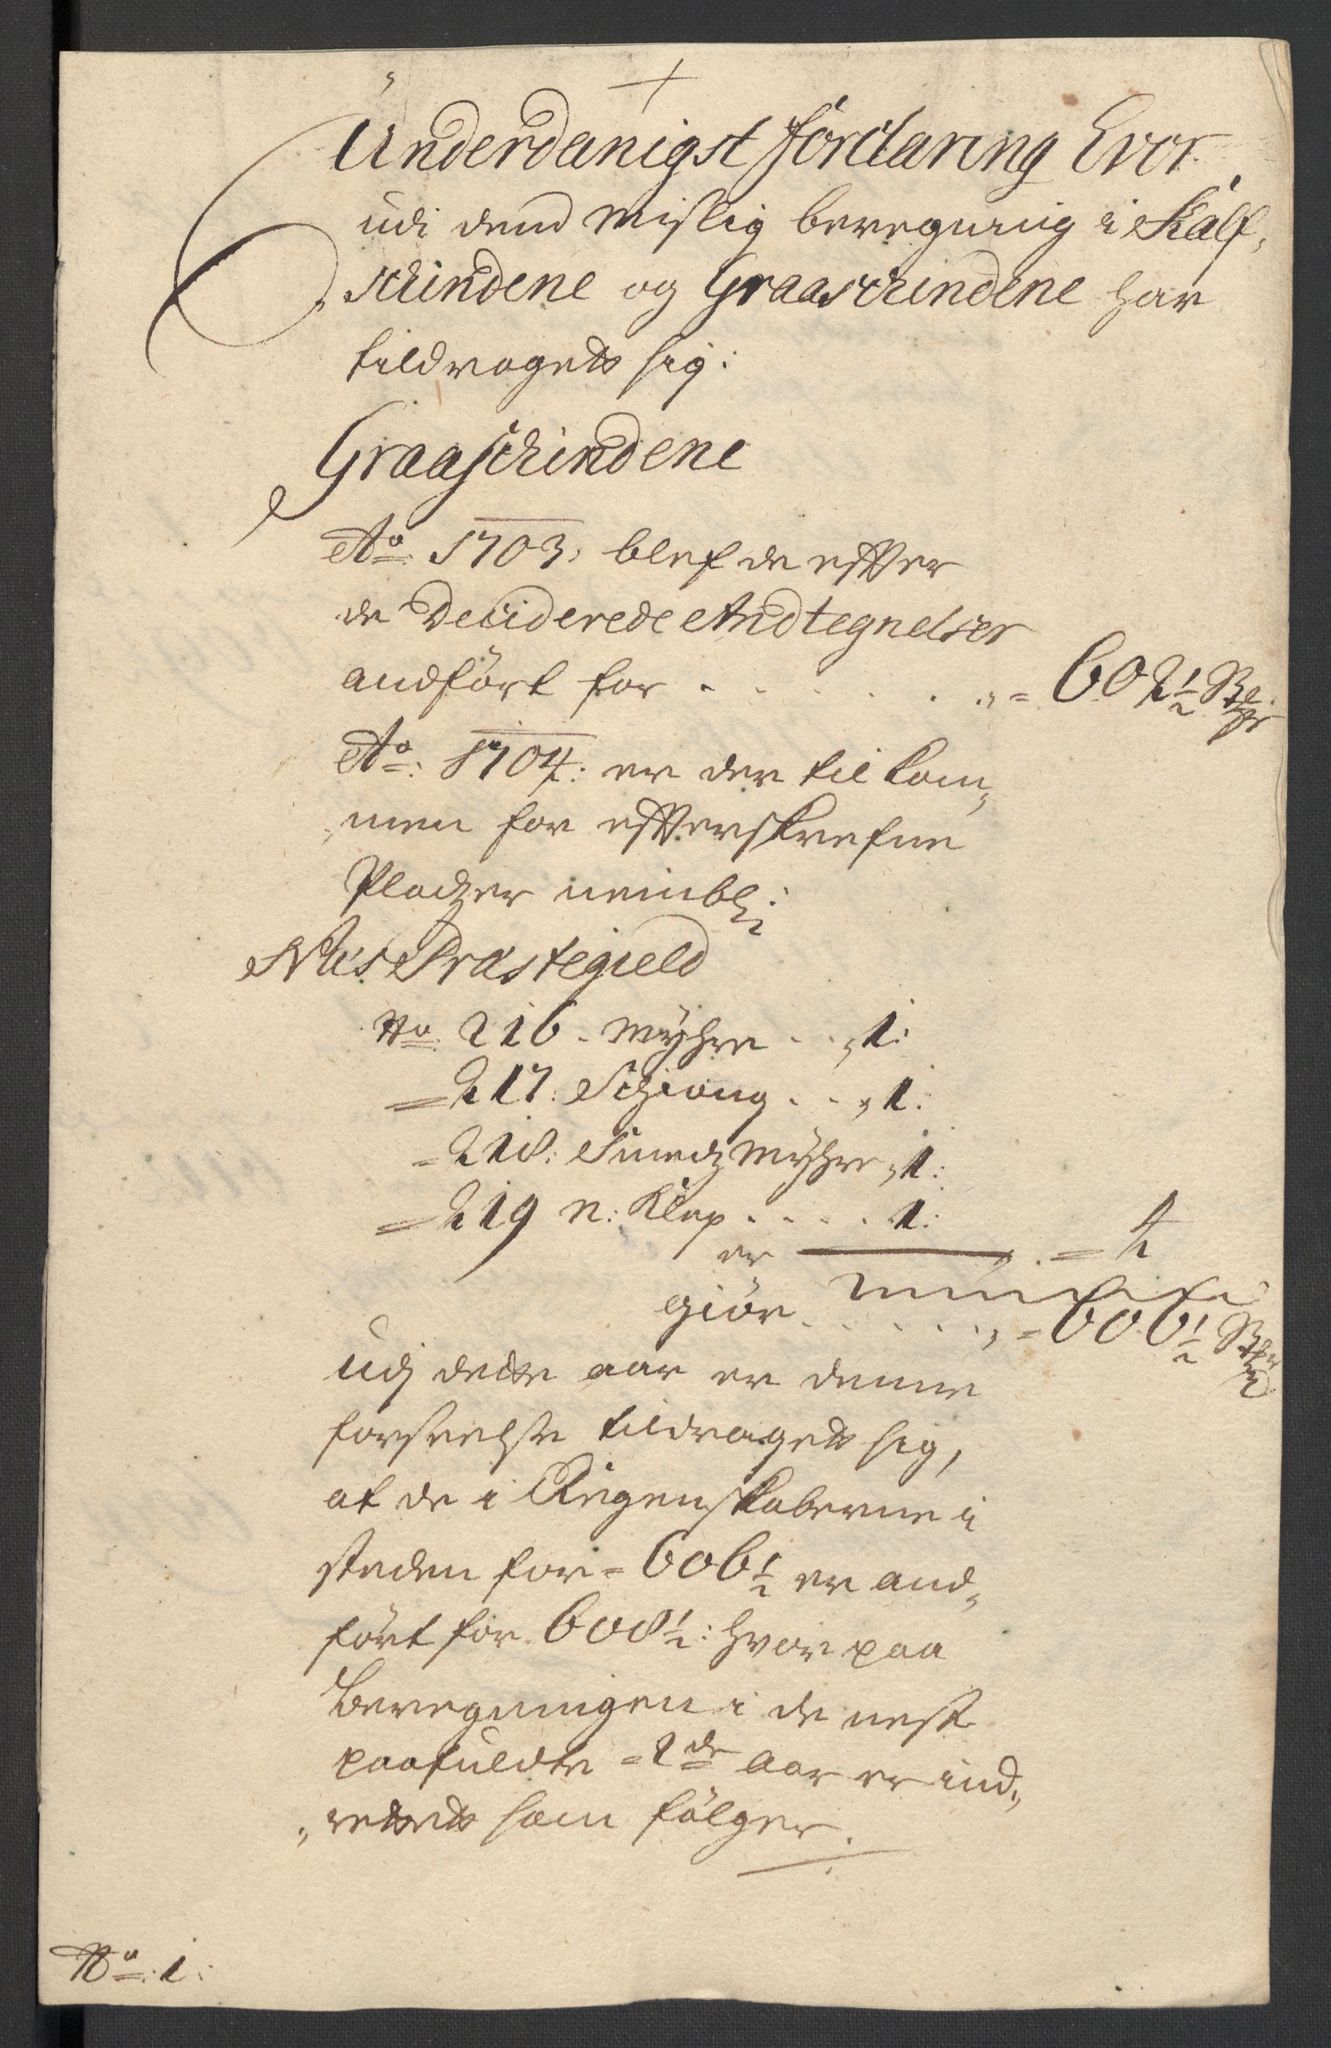 Underdanigst forclaring Hvor
udi dend Mislig beregning i Kalf,
schindene og Graaschindene har
tildraget sig:
Graaschindene
Ao 1703: blef de effter
de Deciderede Andtegnelser
andført for . . . . . . . = 602½
Ao: 1704: er der til kom,
men for effterskrefne
Pladzer neml:
Næs Præstegield
No 216. Myhre . . „ 1:
= 217: Schiong . . „ 1:
= 218: Smedz Myhre „ 1:
= 219 n: Klep . . . . 1:
er . = 4
giør . . . . . „ = 606½
udj dette aar er denne
forseelse tildraget sig,
at de i Regenskaberne i
steden for = 606½ er and,
ført for 608½: hvor paa
beregningen i de nest
paafuldte = 2de aar er ind,
„rettet som følger.
No: 1: